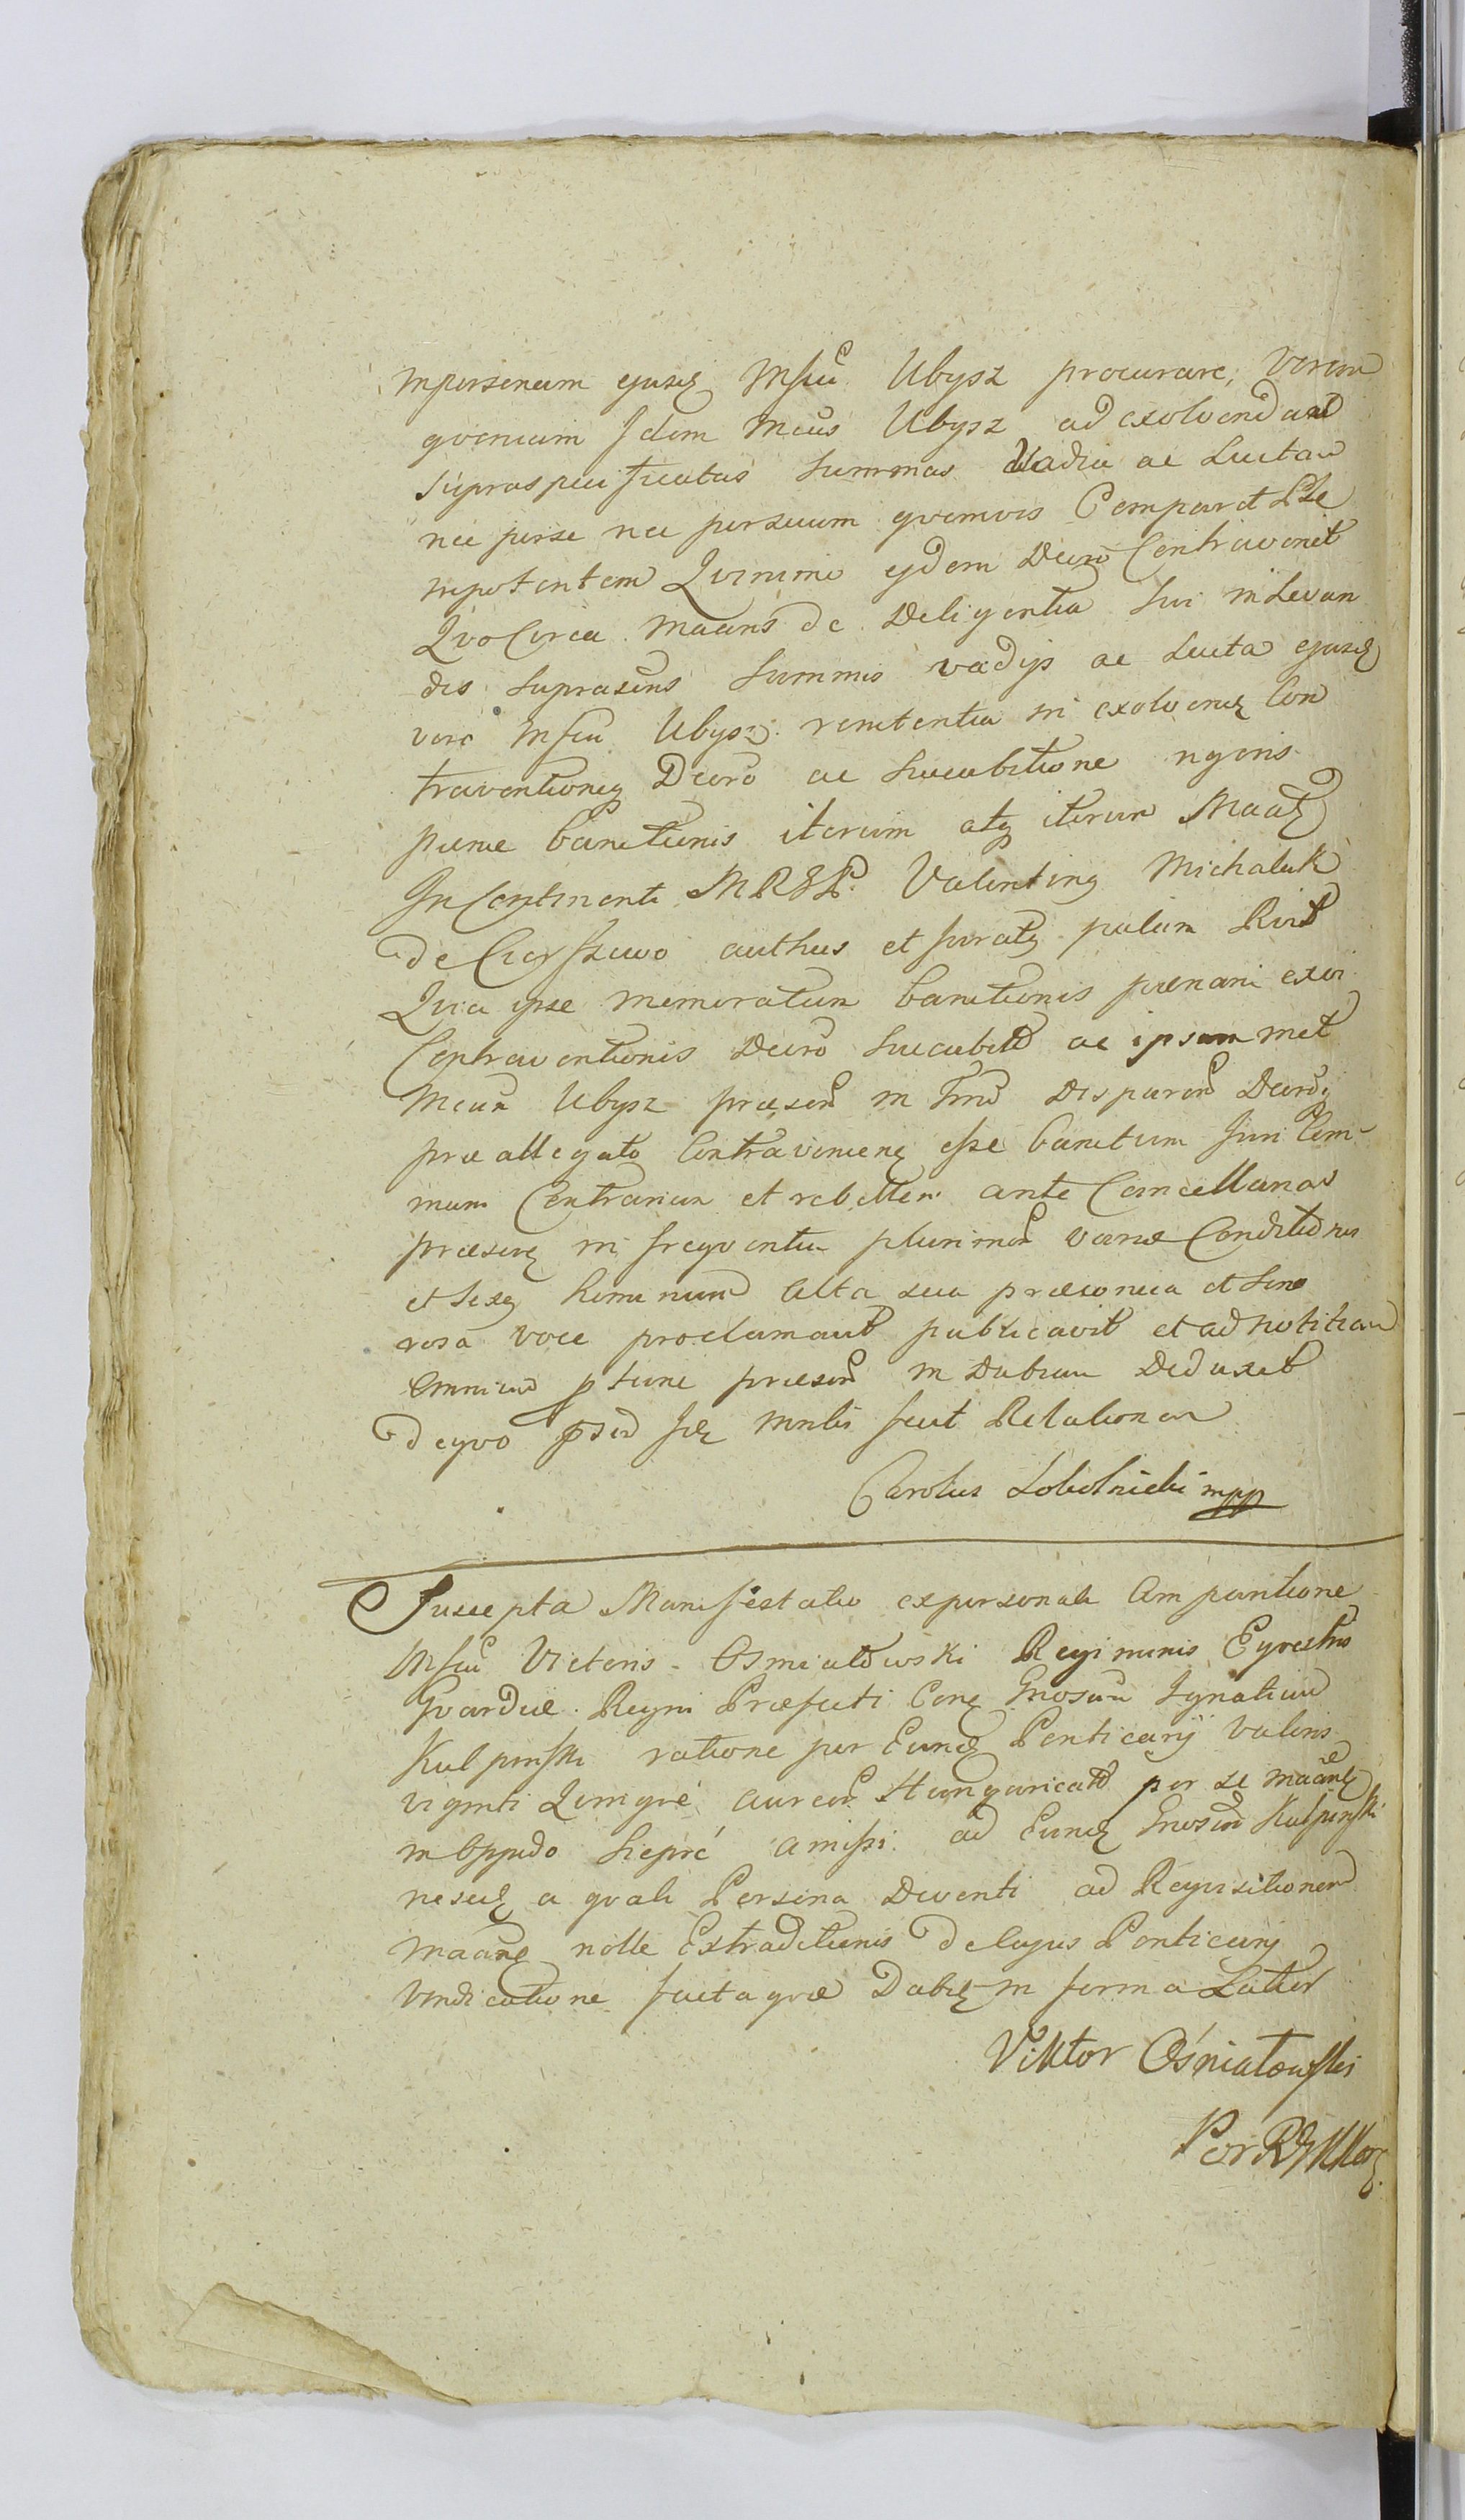 inpersonam ejusd Mfici Ubysz procurare, Verum
quoniam Idem Mcus Ubysz ad exolvendas
supraspecificatas Summas Vadia ac Lucta
nec perse nec persuum quemvis Comparet Ple
nipotentem Quinimo ejdem Decro Contravenit
Quo Circa Maans de Deligentia sui in Levan
dis suprascris Summis vadijs ac Lucta ejusd
vero Mfici Ubysz renitentia in exolvend Con
traventioneq Decro ac Succubitione rigoris
pænæ banitionis iterum atq iterum Maatq
In Continenti MRGP. Valentinq Michaluk
de Cieszewo authus et juratq palam Rcit
Quia ipse memoratum banitionis pœnam ex vi
Contraventionis Decro Succubit ac ipsummet
Mcum Ubysz præsen in Trno Disparen Decroq
præallegato Contravenienq esse banitum Juri Com-
muni Contrarium et rebellem ante Cancellarias
præsenq in frequentia plurimor variæ Conditionis
et Sexq hominum alta sua præconica et Sono
rosa voce proclamavit publicavit et ad notitiam
omnium ptunc præsen in Dubium Deduxit
de quo psed fid mntlis fecit Relationem
Carolus Sobolnicki mpp
Suscepta Manifestatio expersonali Comparitione
Mfici Victoris Osmiałowski Regiminis Eqvestris
Gvardiæ Regni Præfecti Conq Gnosum Ignatium
Kulpinski ratione per Eund Penticarij Valoris
viginti Quinqvé aureor Hungaricali per se maanlq
in Oppido Siepré amissi ad Eund Gnosum Kulpinski
nescitq a quali Persona Deventi ad Reqvisitionem
maanq nolle Extraditionis de Cujus Penticarij
vindicatione facta qvæ Dabitq in forma Latior
Viktor Ośniałowski
Por